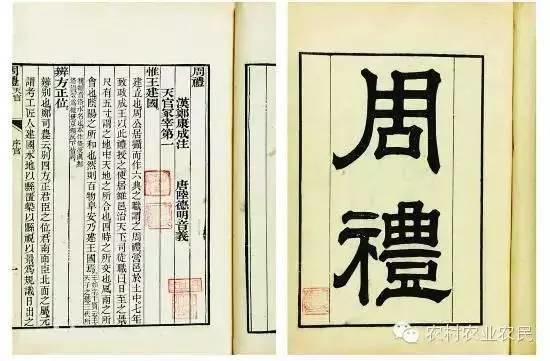 周禮
周禮
漢鄭康成注 唐陸德明音義
天官冢宰第一
惟王建國
建立也周公居攝而作六典之職謂之周禮營邑於土中七年
致政成王以此禮授之使居雒邑治天下司徒職曰日至之景
尺有五寸謂之地中天地之所合也四時之所交也風雨之所
會也陰陽之所和也然則百物阜安乃建王國焉
辨方正位
辨別也鄭司農云別四方正君臣之位君南面臣北面之屬玄
謂考工匠人建國水地以縣置槷以縣視以景爲規識日出之
周禮 天官 序官 一
农村农业农民